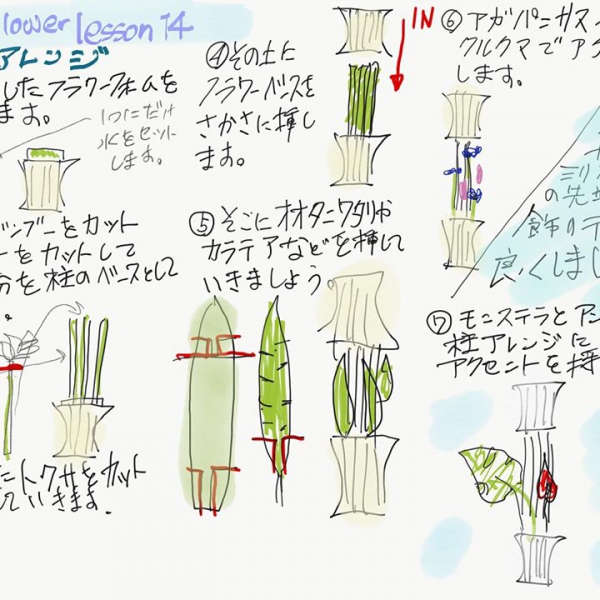 lower lesson 14
アレンジ
したフラワーフォームを
ます。
1つにだけ
水をセット
します。
ンブーをカット
ーをカットして
分を柱のベースとして
。
にトクサをカット
していきます.
④その上に
フラワーベースを
さかさに挿し
ます。
IN
⑤そこにオオタニワタリや
カラテアなどを挿して
いきましょう。
⑥アガパンサス
クルクマでア
します。
ミリ
の先
飾りテ
良くしまし
⑦モンステラとアン
柱アレンジに
アクセントを挿